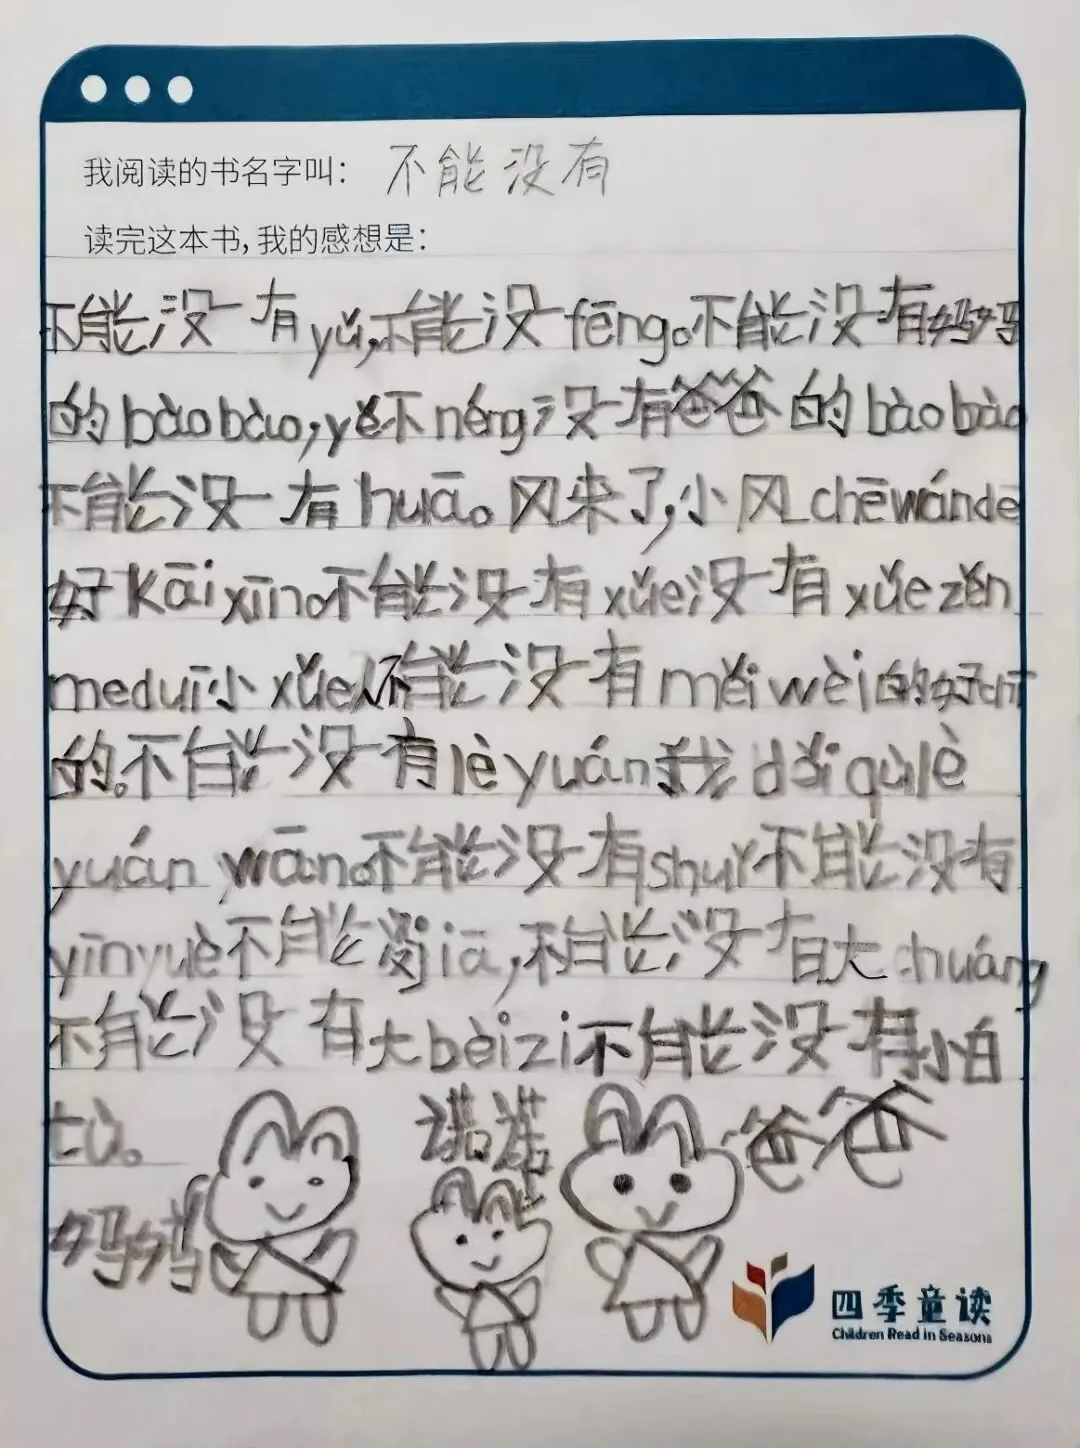 我阅读的书名字叫： 不能没有
读完这本书，我的感想是：
不能没有yǔ，不能没fēng。不能没有妈妈
的bàobào，yě不néng没有爸爸的bàobào
不能没有huā。风来了，小风chēwánde
好kāixīn。不能没有xǔe没有xǔezěn
meduī小xǔe人不能没有měiwèi的好吃
的。不能没有lèyuán我dǎiqùlè
yuánwān。不能没有shuǐ不能没有
yīnyuè不能没jiā，不能没有大chuáng
不能没有大bèizi不能没有小白
tù。
诺诺
爸爸
妈妈
四季童读
Children Read in Seasons